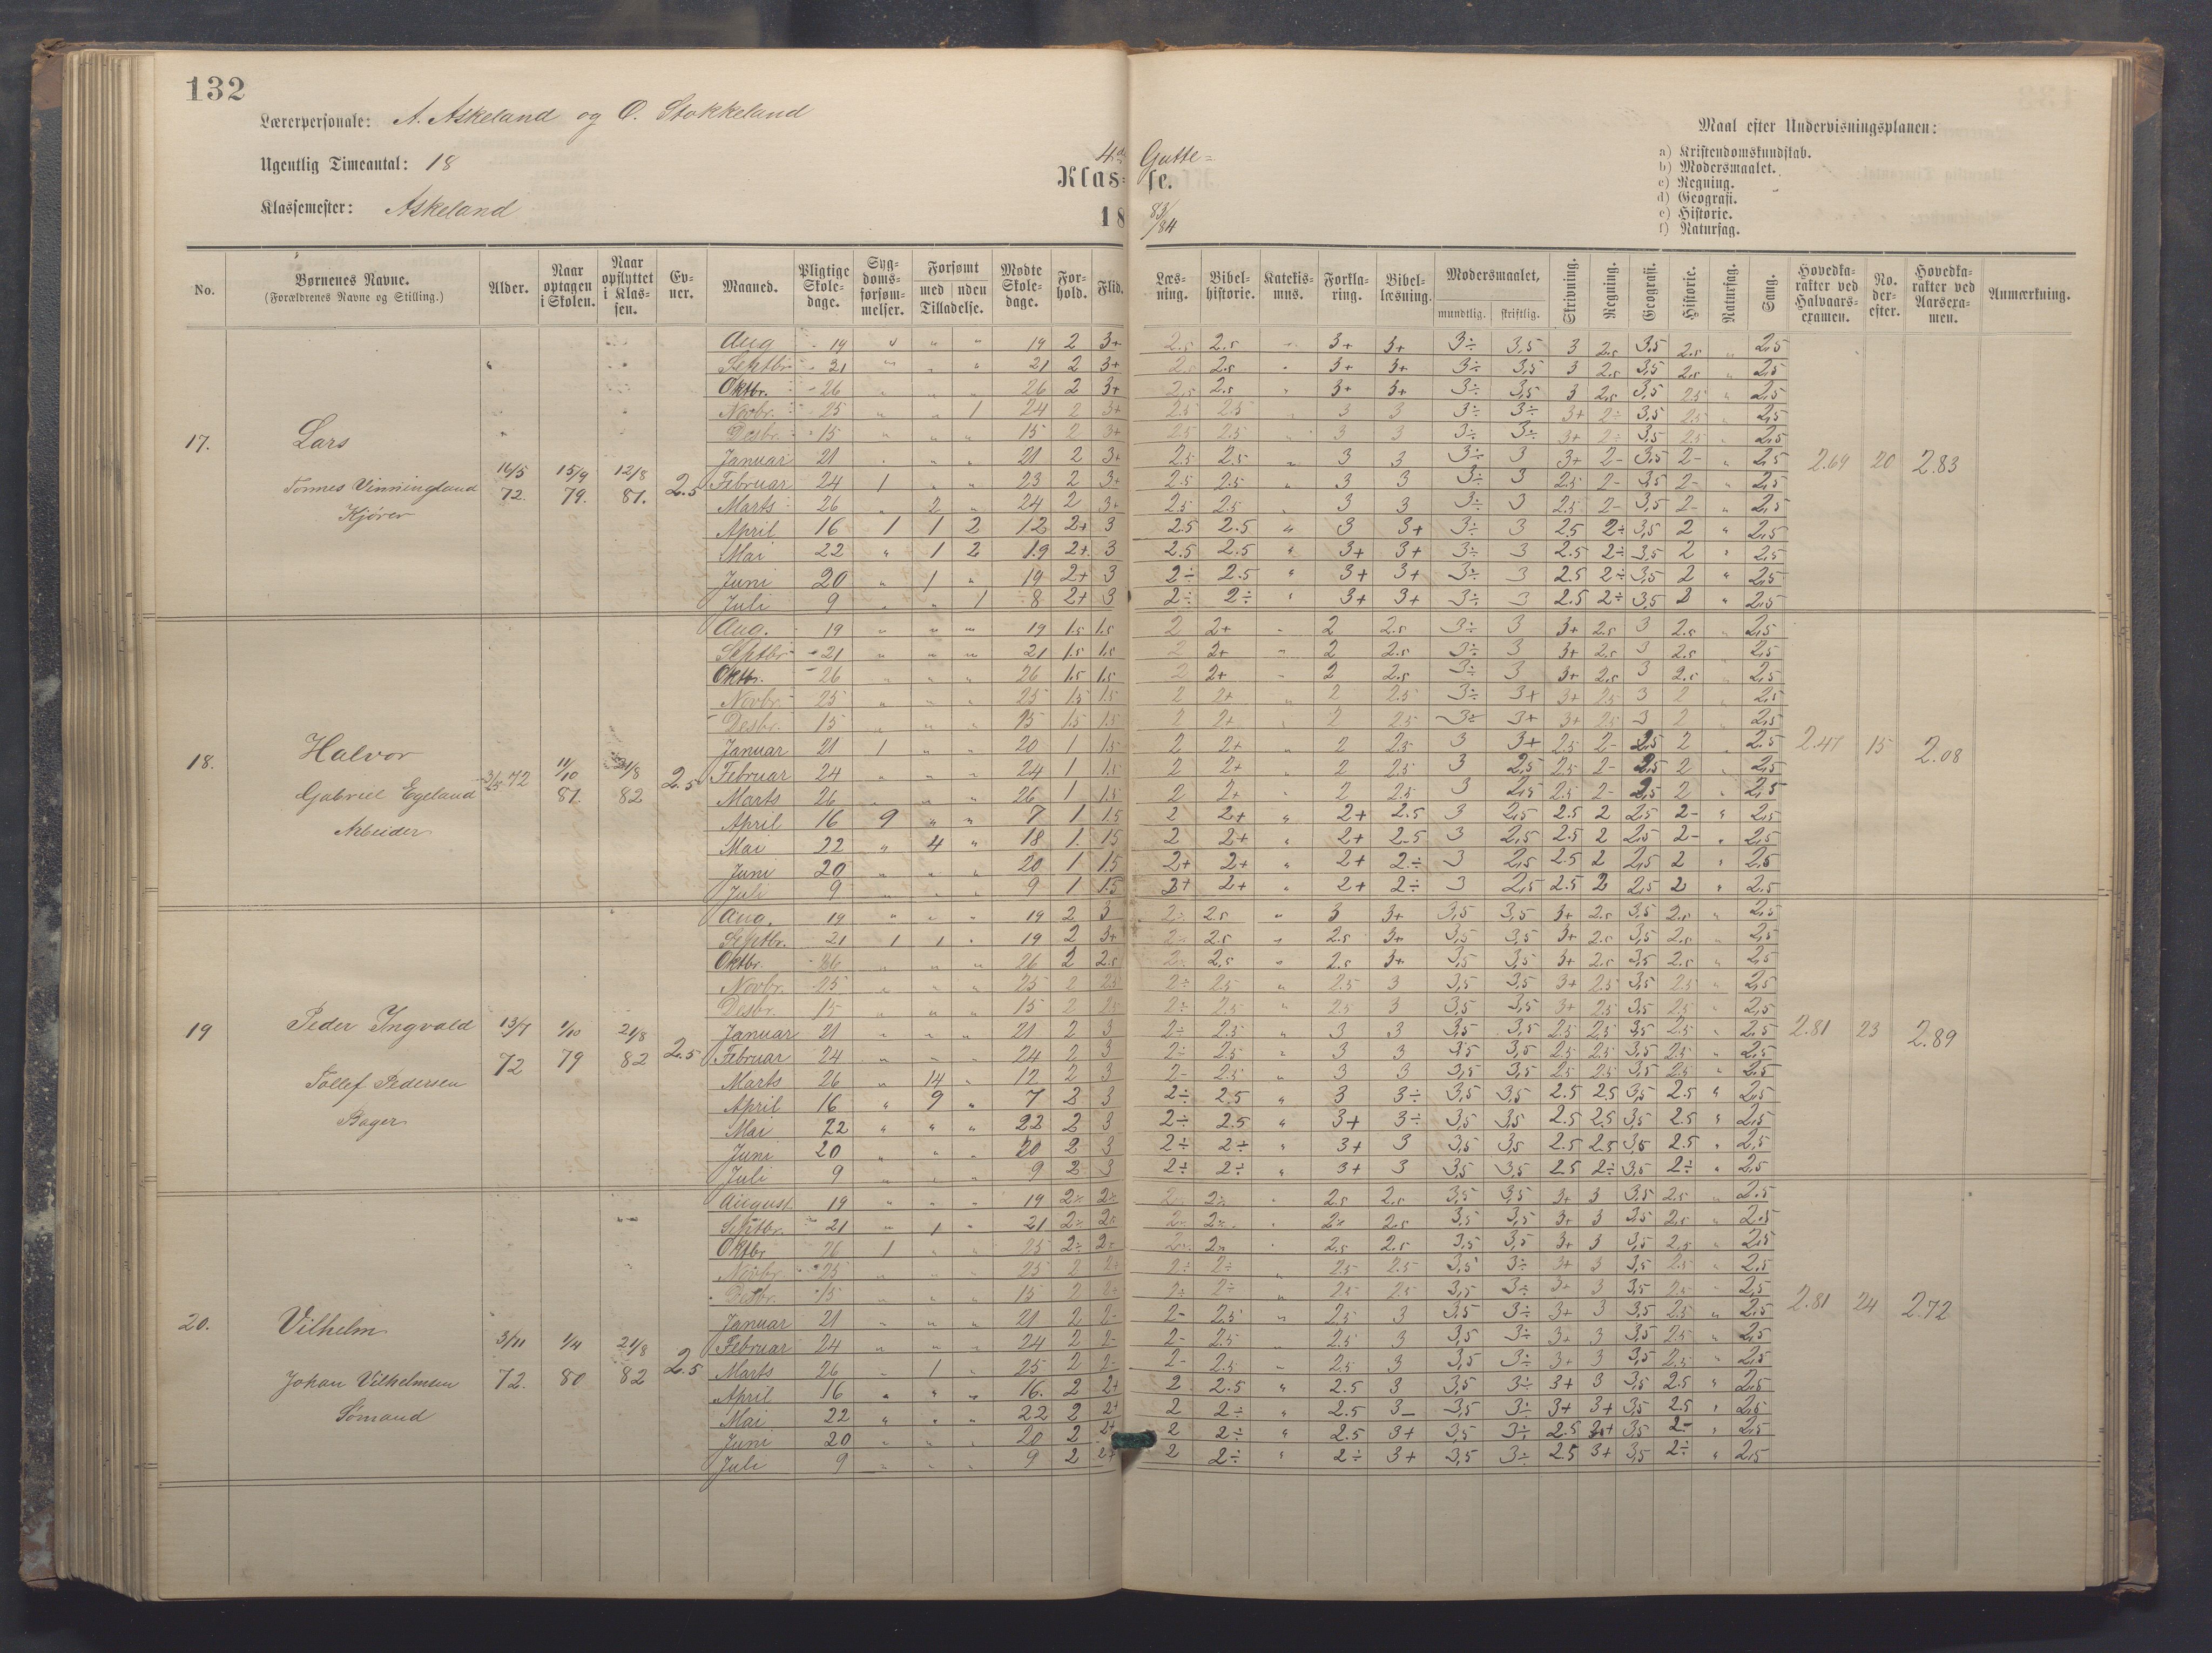 132
Lærerpersonale: A. Askeland og O. Stokkeland
Ugentlig Timeantal: 18
Klassemester: Askeland
4de Gutte=
Klas=se.
18 83/84
Maal efter Undervisningsplanen:
a) Kristendomskundskab.
b) Modersmaalet.
c) Regning.
d) Geografi.
e) Historie.
f) Naturfag.
No. Børnenes Navne. (Forældrenes Navne og Stilling.) Alder. Naar optagen i Skolen. Naar opflyttet i Klas=sen. Ev=ner. Maaned. Pligtige Skole=dage. Syg=doms=forsøm=melser. Forsømt med uden Tilladelse. Mødte Skole=dage. For=hold. Flid. Læs=ning. Bibel=historie. Katekis=mus. Forkla=ring. Bibel=læsning. Modersmaalet, mundtlig. skriftlig. Skrivning. Regning. Geografi. Historie. Naturfag. Sang. Hovedka=rakter ved Halvaars=examen. No. der=efter. Hovedka=rakter ved Aarsexa=men. Anmærkning.
17. Lars
Tønnes Vinningland
Kjører
16/5 72. 15/9 79. 12/8 81. 2.5
Aug 19 " " " 19 2 3+ 2.5 2.5 " 3+ 3+ 3÷ 3,5 3 2.5 3,5 2.5 " 2,5
Septbr. 21 " " " 21 2 3+ 2.5 2.5 " 3+ 3+ 3÷ 3,5 3 2.5 3,5 2.5 " 2,5
Oktbr. 26 " " " 26 2 3+ 2.5 2.5 " 3+ 3+ 3÷ 3,5 3 2.5 3,5 2.5 " 2,5
Novbr. 25 " " 1 24 2 3+ 2.5 2.5 " 3 3 3÷ 3÷ 3+ 2÷ 3,5 2.5 " 2,5
Desbr. 15 " " " 15 2 3+ 2.5 2.5 " 3 3 3÷ 3÷ 3+ 2÷ 3,5 2.5 " 2,5
Januar 21 " " " 21 2 3+ 2.5 2.5 " 3 3 3÷ 3 3+ 2- 3,5 2- " 2,5 2.69 20 2.83
Februar 24 1 " " 23 2 3+ 2.5 2.5 " 3 3 3÷ 3 2.5 2- 3,5 2- " 2,5
Marts 26 " 2 " 24 2 3+ 2.5 2.5 " 3 3 3÷ 3 2.5 2- 3,5 2- " 2,5
April 16 1 1 2 12 2+ 3 2.5 2.5 " 3 3+ 3÷ 3 2.5 2÷ 3,5 2 " 2,5
Mai 22 " 1 2 19 2+ 3 2.5 2.5 " 3+ 3+ 3÷ 3 2.5 2÷ 3,5 2 " 2,5
Juni 20 " 1 " 19 2+ 3 2÷ 2.5 " 3+ 3+ 3÷ 3 2.5 2÷ 3,5 2 " 2,5
Juli 9 " " 1 8 2+ 3 2÷ 2÷ " 3+ 3+ 3÷ 3 2.5 2÷ 3,5 2 " 2,5
18. Halvor
Gabriel Egeland
Arbeider
72 11/10 81. 21/8 82 2.5
Aug. 19 " " " 19 1.5 1.5 2 2+ " 2 2.5 3÷ 3 3+ 2.5 3 2.5 " 2,5
Septbr 21 " " " 21 1.5 1.5 2 2+ " 2 2.5 3÷ 3 3+ 2.5 3 2.5 " 2,5
Oktbr. 26 " " " 26 1.5 1.5 2 2+ " 2 2.5 3÷ 3 3+ 2.5 3 2.5 " 2,5
Novbr. 25 " " " 25 1.5 1.5 2 2+ " 2 2.5 3÷ 3+ 3+ 2.5 3 2 " 2,5
Desbr. 15 " " " 15 1.5 1.5 2 2+ " 2 2.5 3÷ 3+ 3+ 2.5 3 2 " 2,5
Januar 21 1 " " 20 1 1.5 2 2+ " 2 2.5 3 3+ 2.5 2- 2,5 2 " 2.5 2.47 15 2.08
Februar 24 " " " 24 1 1.5 2 2+ " 2 2.5 3 2,5 2.5 2- 2,5 2 " 2,5
Marts 26 " " " 26 1 1.5 2 2+ " 2 2.5 3 2,5 2.5 2- 2,5 2 " 2,5
April 16 9 " " 7 1 1.5 2 2+ " 2+ 2.5 3 2,5 2.5 2 2,5 2- " 2,5
Mai 22 " 4 " 18 1. 1.5 2 2+ " 2+ 2.5 3 2,5 2.5 2 2,5 2- " 2,5
Juni 20 " " " 20 1 1.5 2+ 2+ " 2+ 2÷ 3 2,5 2.5 2 2,5 2 " 2,5
Juli 9 " " " 9 1 1.5 2+ 2+ " 2+ 2÷ 3 2,5 2.5 2 2,5 2 " 2.5
19 Peder Ingvald
Tollef Pedersen
Bager
13/7 72 1/10 79 21/8 82 2.5
Aug. 19 " " " 19 2 3 2÷ 2.5 " 3 3+ 3,5 3,5 3+ 2.5 3,5 2.5 " 2,5
Septbr. 21 1 1 " 19 2 3+ 2÷ 2.5 " 2.5 3+ 3,5 3,5 3+ 2.5 3,5 2.5 " 2,5
Oktbr. 26 " " " 26 2 2.5 2÷ 2.5 " 2.5 3+ 3,5 3,5 3+ 2.5 3,5 2.5 " 2,5
Novbr. 25 " " " 25 2 2.5 2÷ 2.5 " 2.5 3 3,5 3,5 3+ 2.5 3,5 2.5 " 2,5
Desbr. 15 " " " 15 2 2.5 2÷ 2.5 " 2.5 3 3,5 3,5 3+ 2.5 3,5 2.5 " 2,5
Januar 21 " " " 21 2 3 2÷ 2.5 " 3 3 3,5 3,5 2.5 2.5 3,5 2.5 " 2,5 2.81 23 2.89
Februar 24 " " " 24 2 3 2÷ 2.5 " 3 3 3,5 3,5 2.5 2.5 3,5 2.5 " 2,5
Marts 26 " 14 " 12 2 3 2- 2.5 " 3 3 3,5 3,5 2.5 2.5 3,5 2.5 " 2.5
April 16 " 9 " 7 2 3 2÷ 2.5 " 3 3÷ 3,5 3,5 2.5 2.5 3,5 2.5 " 2,5
Mai 22 " " " 22 2 3 2÷ 2.5 " 3+ 3÷ 3,5 3,5 2.5 2.5 3,5 2.5 " 2,5
Juni 20 " " " 20 2 3 2÷ 2÷ " 3+ 3 3,5 3,5 2.5 2.5 3,5 2.5 " 2,5
Juli 9 " " " 9 2 3 2÷ 2÷ " 3+ 3 3,5 3,5 2.5 2÷ 3,5 2÷ " 2,5
20. Vilhelm
Johan Vilhelmsen
Sømand
3/11 72. 1/4 80 21/8 82 2.5
August 19 " " " 19 2÷ 2÷ 2÷ 2÷ " 2.5 2.5 3,5 3,5 3+ 3 3,5 2.5 " 2.5
Septbr. 21 " 1 " 21 2÷ 2÷ 2÷ 2÷ " 2÷ 2.5 3,5 3,5 3+ 3 3,5 2.5 " 2.5
Oktbr 26 1 " " 25 2÷ 2÷ 2÷ 2÷ " 2.5 2.5 3,5 3,5 3+ 3 3,5 2.5 " 2,5
Novbr. 25 " " " 25 2 2÷ 2÷ 2÷ " 2.5 2.5 3,5 3÷ 3+ 3 3,5 2.5 " 2,5
Desbr. 15 " " " 15 2 2÷ 2÷ 2÷ " 2.5 2.5 3,5 3÷ 3+ 3 3,5 2.5 " 2,5
Januar 21 " " " 21 2 2- 2- 2.5 " 2.5 3 3,5 3÷ 3+ 3 3,5 2.5 " 2,5 2.81 24 2.72
Februar 24 " " " 24 2 2- 2- 2.5 " 2.5 3 3,5 3÷ 3+ 3 3,5 2.5 " 2,5
Marts 26 " 1 " 25 2 2- 2- 2.5 " 2.5 3 3,5 3÷ 3+ 3 3,5 2.5 " 2,5
April 16 " " " 16. 2 2+ 2 2.5 " 2.5 3 3,5 3÷ 3+ 3 3,5 2.5 " 2,5
Mai 22 " " " 22 2 2+ 2 2÷ " 2.5 3- 3,5 3÷ 3+ 3+ 3,5 2.5 " 2,5
Juni 20 " " " 20 2 2+ 2 2÷ " 2.5 3+ 3,5 3÷ 2.5 3+ 3,5 2- " 2,5
Juli 9 " " " 9 2 2+ 2 2÷ " 2÷ 3+ 3,5 3÷ 2.5 3+ 3,5 2÷ " 2,5